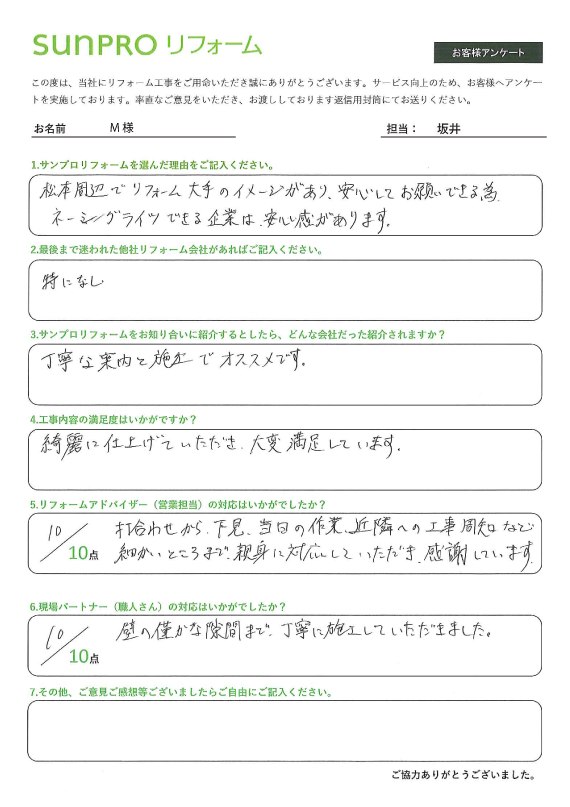 SUNPRO リフォーム
お客様アンケート
この度は、当社にリフォーム工事をご用命いただき誠にありがとうございます。サービス向上のため、お客様へアンケー
トを実施しております。率直なご意見をいただき、お渡ししております返信用封筒にてお送りください。
お名前 M様 担当： 坂井
1.サンプロリフォームを選んだ理由をご記入ください。
松本周辺でリフォーム大手のイメージがあり、安心してお願いできる為
ネーミングライツできる企業は、安心感があります。
2.最後まで迷われた他社リフォーム会社があればご記入ください。
特になし
3.サンプロリフォームをお知り合いに紹介するとしたら、どんな会社だった紹介されますか？
丁寧な案内と施工でオススメです。
4.工事内容の満足度はいかがですか？
綺麗に仕上げていただき、大変満足しています。
5.リフォームアドバイザー（営業担当）の対応はいかがでしたか？
10/10点
打合わせから、下見、当日の作業、近隣への工事周知など
細かいところまで、親身に対応していただき、感謝しています。
6.現場パートナー（職人さん）の対応はいかがでしたか？
10/10点
壁の僅かな隙間まで、丁寧に施工していただきました。
7.その他、ご意見ご感想等ございましたらご自由にご記入ください。
ご協力ありがとうございました。